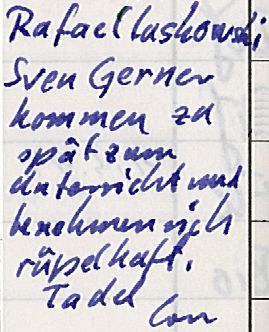 Rafael Laskowski
Sven Gerner
kommen zu
spät zum
Unterricht und
benehmen sich
rüpelhaft.
Tadel